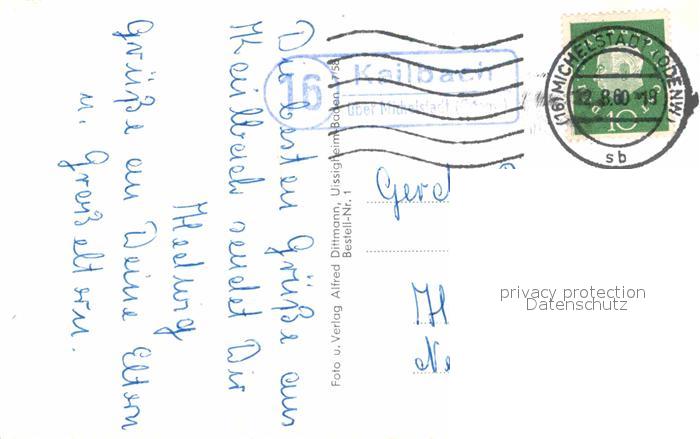 Die besten Grüße aus
Kailbach sendet Dir
Hedwig
Grüße an Deine Eltern
u. Großeltern.
Foto u. Verlag Alfred Dittmann, Uissigheim-Baden 7/58
Bestell-Nr. 1
16
Kailbach
über Michelstadt (Odenw)
(16) MICHELSTADT (ODENW)
2.8.60-19
sb
10
Gerd
privacy protection
Datenschutz